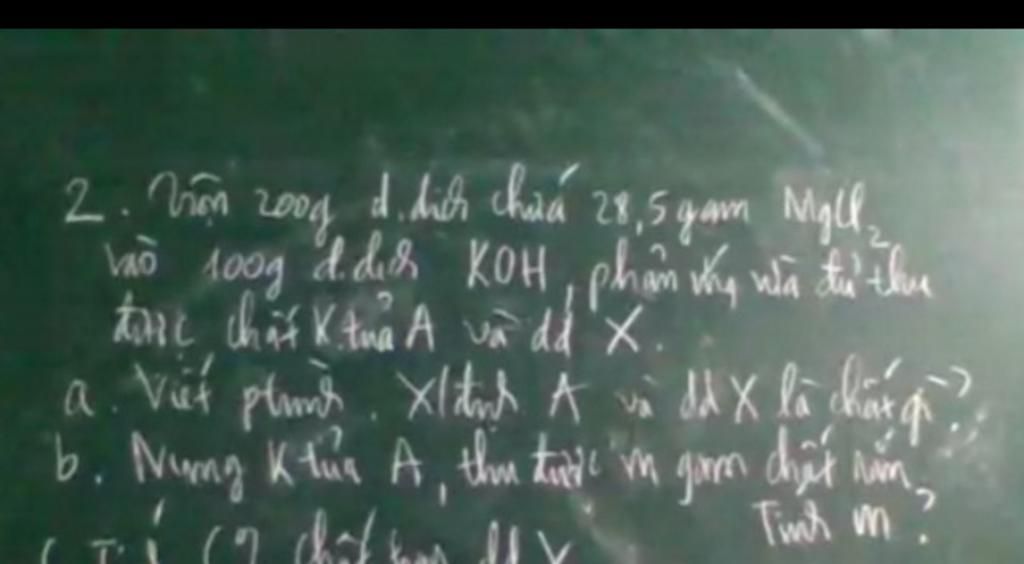 2. Trộn 200g d.dịch chứa 28,5 gam MgCl2
vào 100g d.dịch KOH, phản ứng vừa đủ thu
được chất K.tủa A và dd X.
a. Viết ptình. X/định A và dd X là chất gì?
b. Nung K tủa A, thu được m gam chất rắn.
Tính m?
C% chất tan dd X